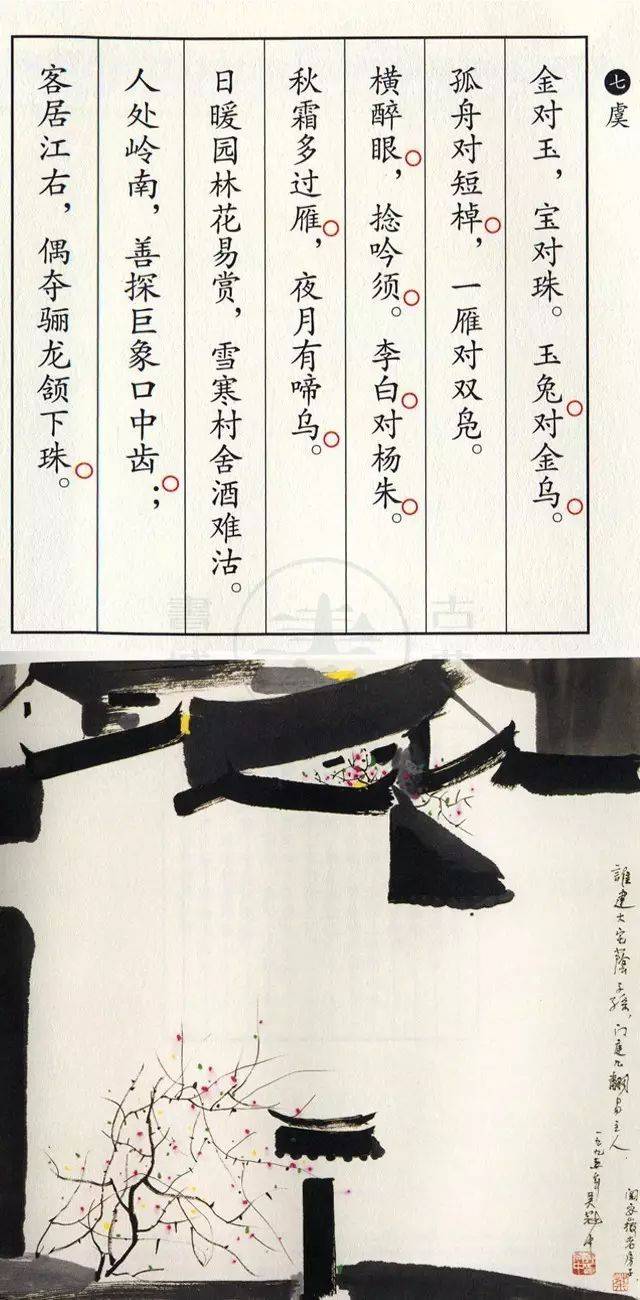 七 虞
金对玉，宝对珠。玉兔对金乌。
孤舟对短棹，一雁对双凫。
横醉眼，捻吟须。李白对杨朱。
秋霜多过雁，夜月有啼乌。
日暖园林花易赏，雪寒村舍酒难沽。
人处岭南，善探巨象口中齿；
客居江右，偶夺骊龙颔下珠。
誰建大宅蔭子孫，门庭几翻易主人
一九九五年吴冠中